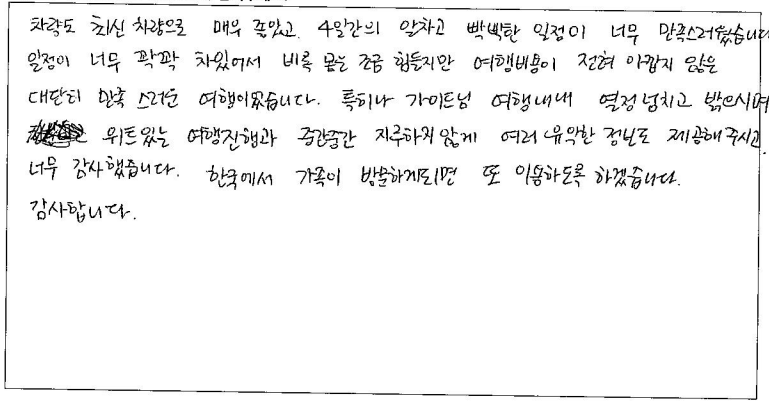 차량도 최신 차량으로 매우 좋았고, 4일간의 알차고 빡빡한 일정이 너무 만족스러웠습니다
일정이 너무 꽉꽉 차있어서 비록 몸은 조금 힘들지만 여행비용이 전혀 아깝지 않은
대단히 만족 스러운 여행이었습니다. 특히나 가이드님 여행내내 열정넘치고 밝으시며
위트있는 여행진행과 중간중간 지루하지않게 여러 유익한 정보도 제공해주시고.
너무 감사했습니다. 한국에서 가족이 방문하게되면 또 이용하도록 하겠습니다.
감사합니다.